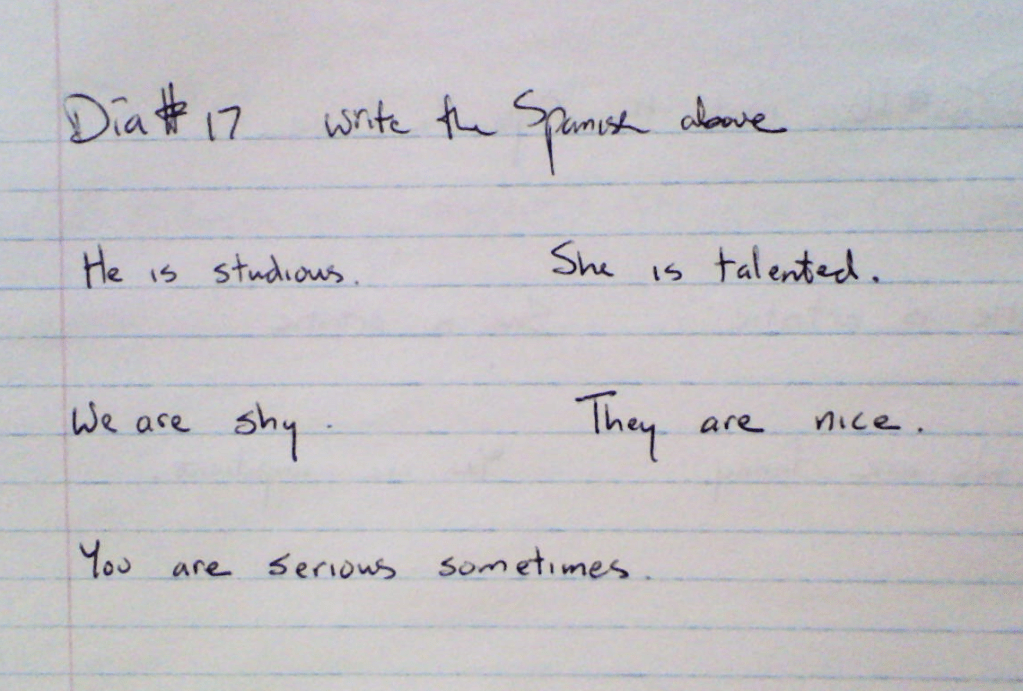 Día # 17 write the Spanish above
He is studious. She is talented.
We are shy. They are nice.
You are serious sometimes.